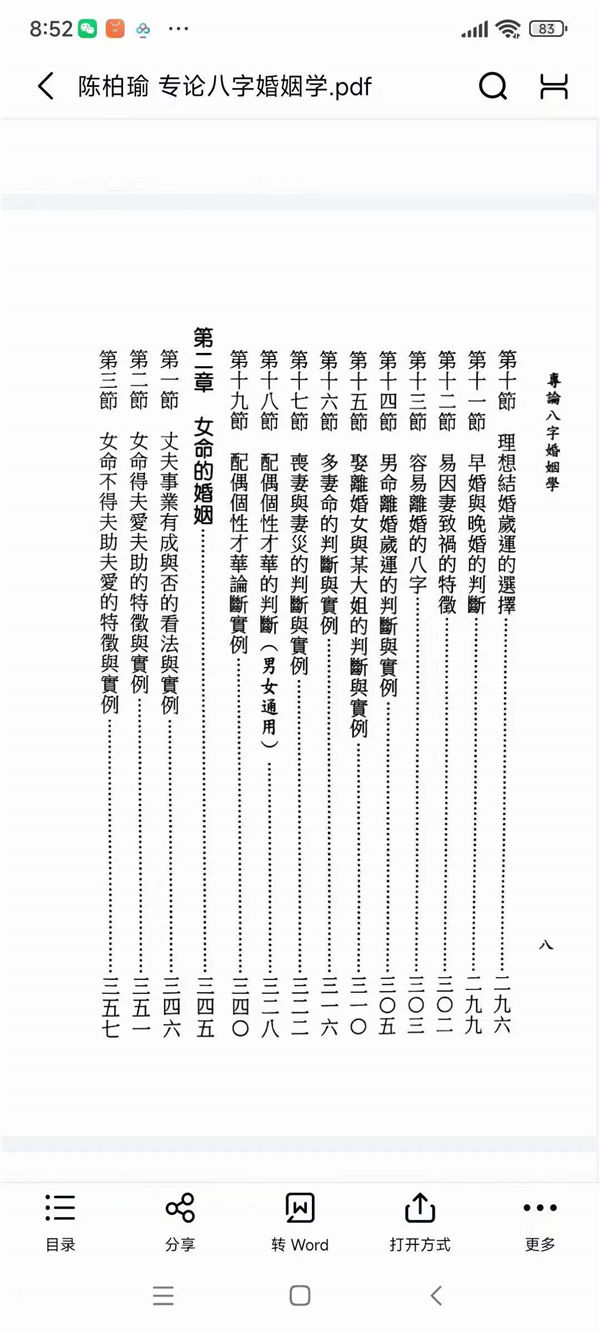 8:52
83
陈柏瑜 专论八字婚姻学.pdf
專論八字婚姻學
八
第十節 理想結婚歲運的選擇……二九六
第十一節 早婚與晚婚的判斷……二九九
第十二節 易因妻致禍的特徵……三〇二
第十三節 容易離婚的八字……三〇三
第十四節 男命離婚歲運的判斷與實例……三〇五
第十五節 娶離婚女與某大姐的判斷與實例……三一〇
第十六節 多妻命的判斷與實例……三一六
第十七節 喪妻與妻災的判斷與實例……三二二
第十八節 配偶個性才華的判斷(男女通用)……三二八
第十九節 配偶個性才華論斷實例……三四〇
第二章 女命的婚姻……三四五
第一節 丈夫事業有成與否的看法與實例……三四六
第二節 女命得夫愛夫助的特徵與實例……三五一
第三節 女命不得夫助夫愛的特徵與實例……三五七
目录
分享
转 Word
打开方式
更多